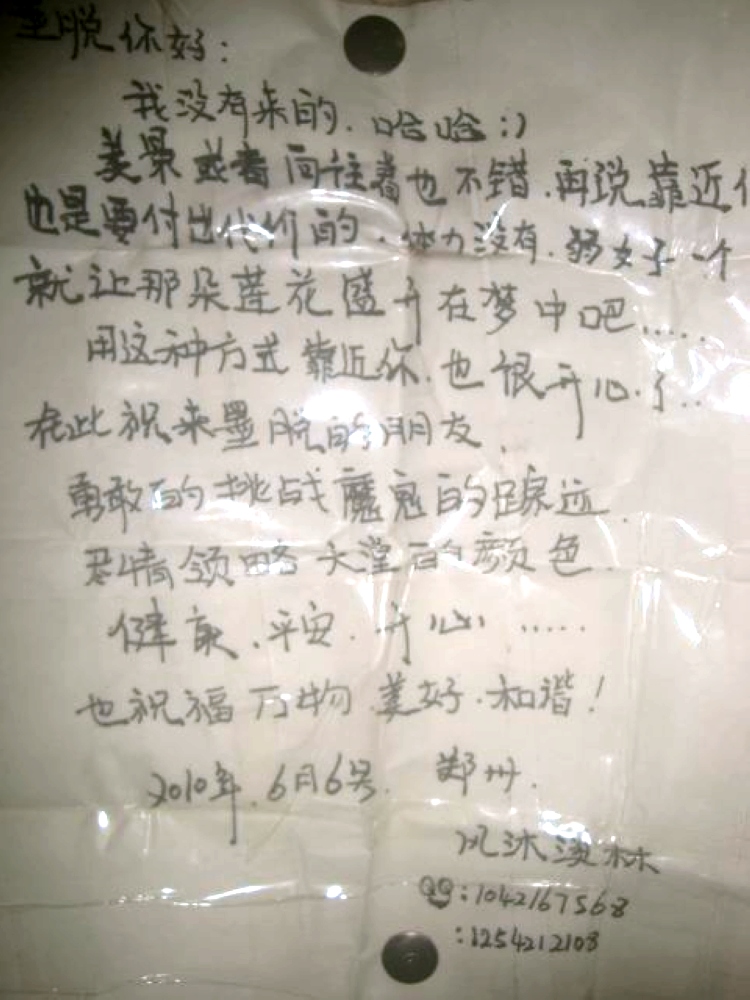 墨脱你好:
我没有来的.哈哈:)
美景或者向往着也不错.再说靠近你
也是要付出代价的.体力没有.弱女子一个
就让那朵莲花盛开在梦中吧.....
用这种方式靠近你.也很开心了..
在此祝来墨脱的朋友.
勇敢的挑战魔鬼的踪迹.
尽情领略天堂的颜色.
健康.平安.开心.....
也祝福万物美好.和谐!
2010年.6月6号. 郑州.
QQ:1042167568
:1254212108